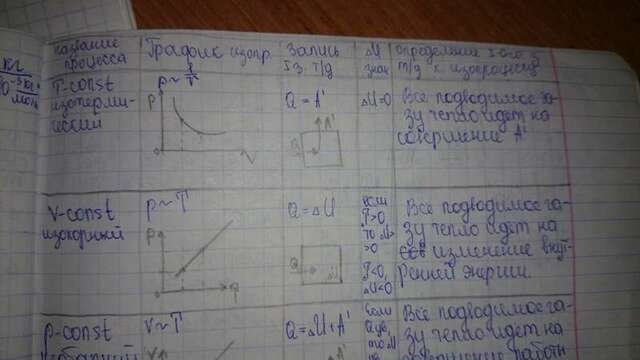 название процесса
График изопр.
Запись I з. т/д
ΔU знак
определение I-ого з. т/д к изопроцессу
кг
моль
T-const изотерми-
ческий
P
V
Q = A'
ΔU=0
Все подводимое га-
зу тепло идет на
совершение A'
A'
Q
V-const
изохорный
p ~ T
P
Q = ΔU
если
T>0
то
>0
T<0,
ΔU<0
Q
ΔU
Все подводимое га-
зу тепло идет на
изменение внут-
ренней энергии.
p-const
V ~ T
V
Q = ΔU+A'
Если
Все подводимое га-
зу тепло идет на
работы